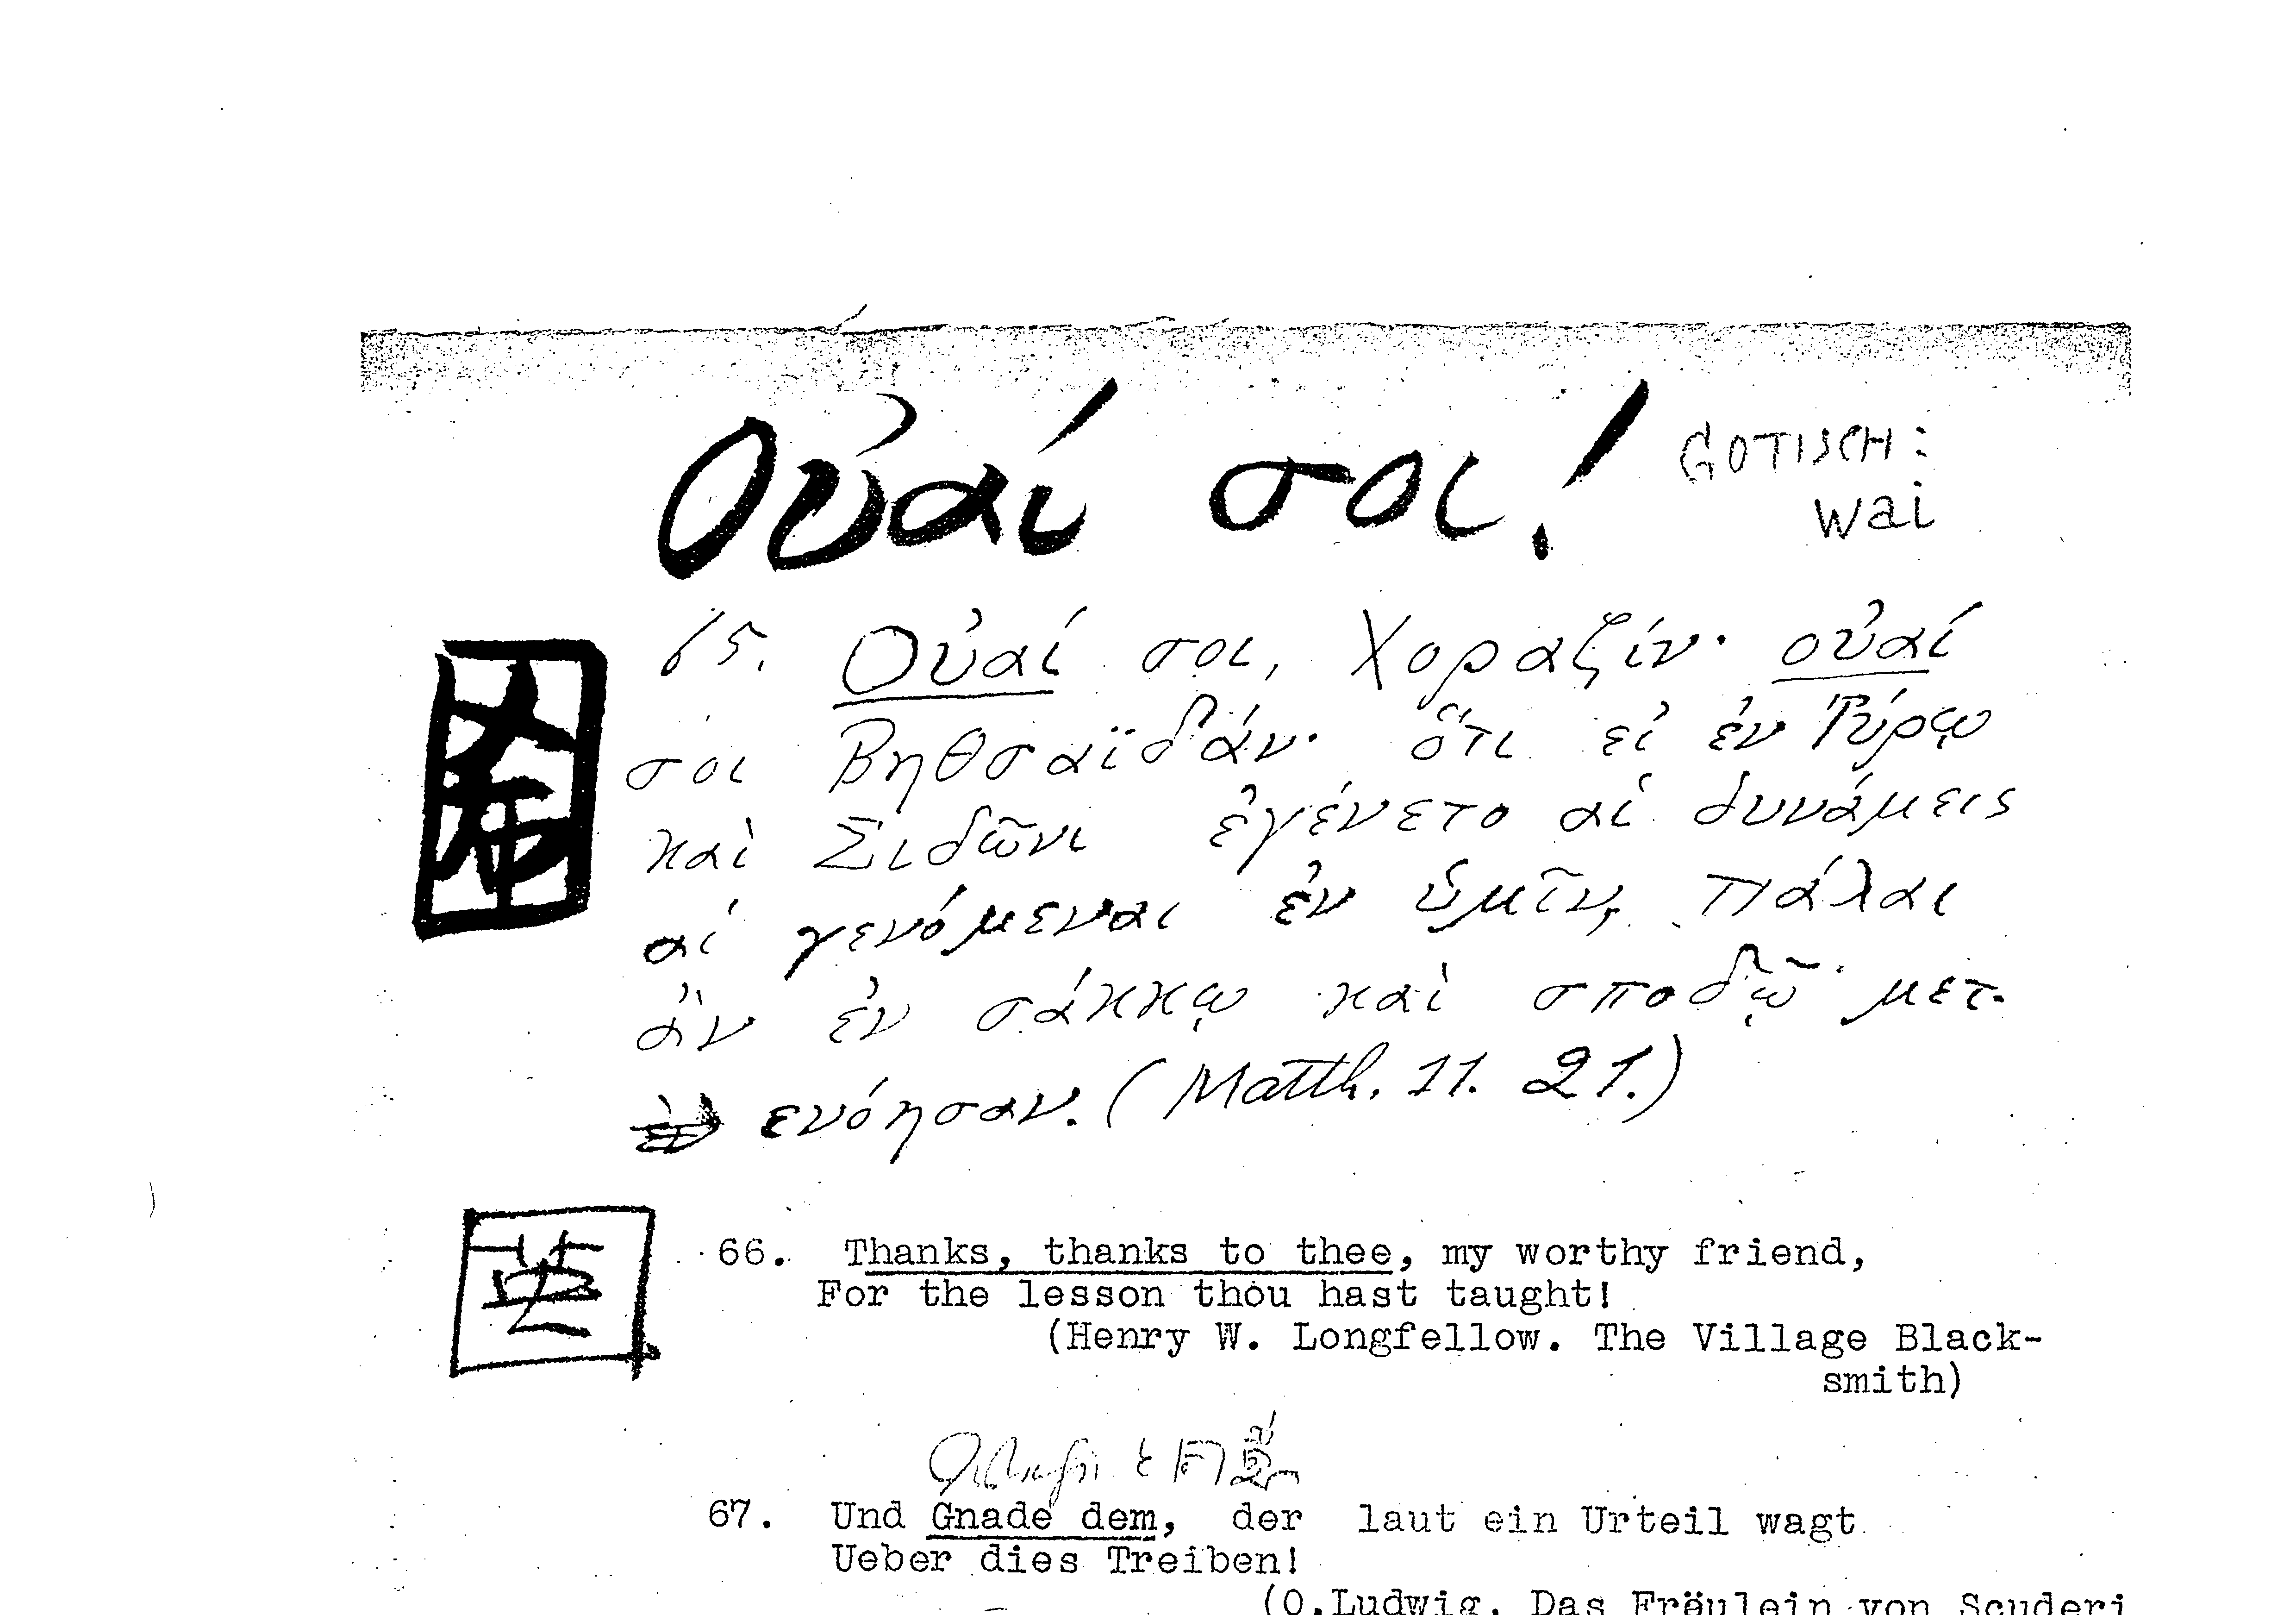 Οὐαί σοι!
GOTISCH:
wai
65. Οὐαί σοι, Χοραζίν· οὐαί
σοι Βηθσαϊδάν· ὅτι εἰ ἐν Τύρῳ
καὶ Σιδῶνι ἐγένετο αἱ δυνάμεις
αἱ γενόμεναι ἐν ὑμῖν, πάλαι
ἂν ἐν σάκκῳ καὶ σποδῷ μετ-
ενόησαν. (Matth. 11. 21.)
66. Thanks, thanks to thee, my worthy friend,
For the lesson thou hast taught!
(Henry W. Longfellow. The Village Black-
smith)
67. Und Gnade dem, der laut ein Urteil wagt
Ueber dies Treiben!
(O.Ludwig. Das Fräulein von Scuderi